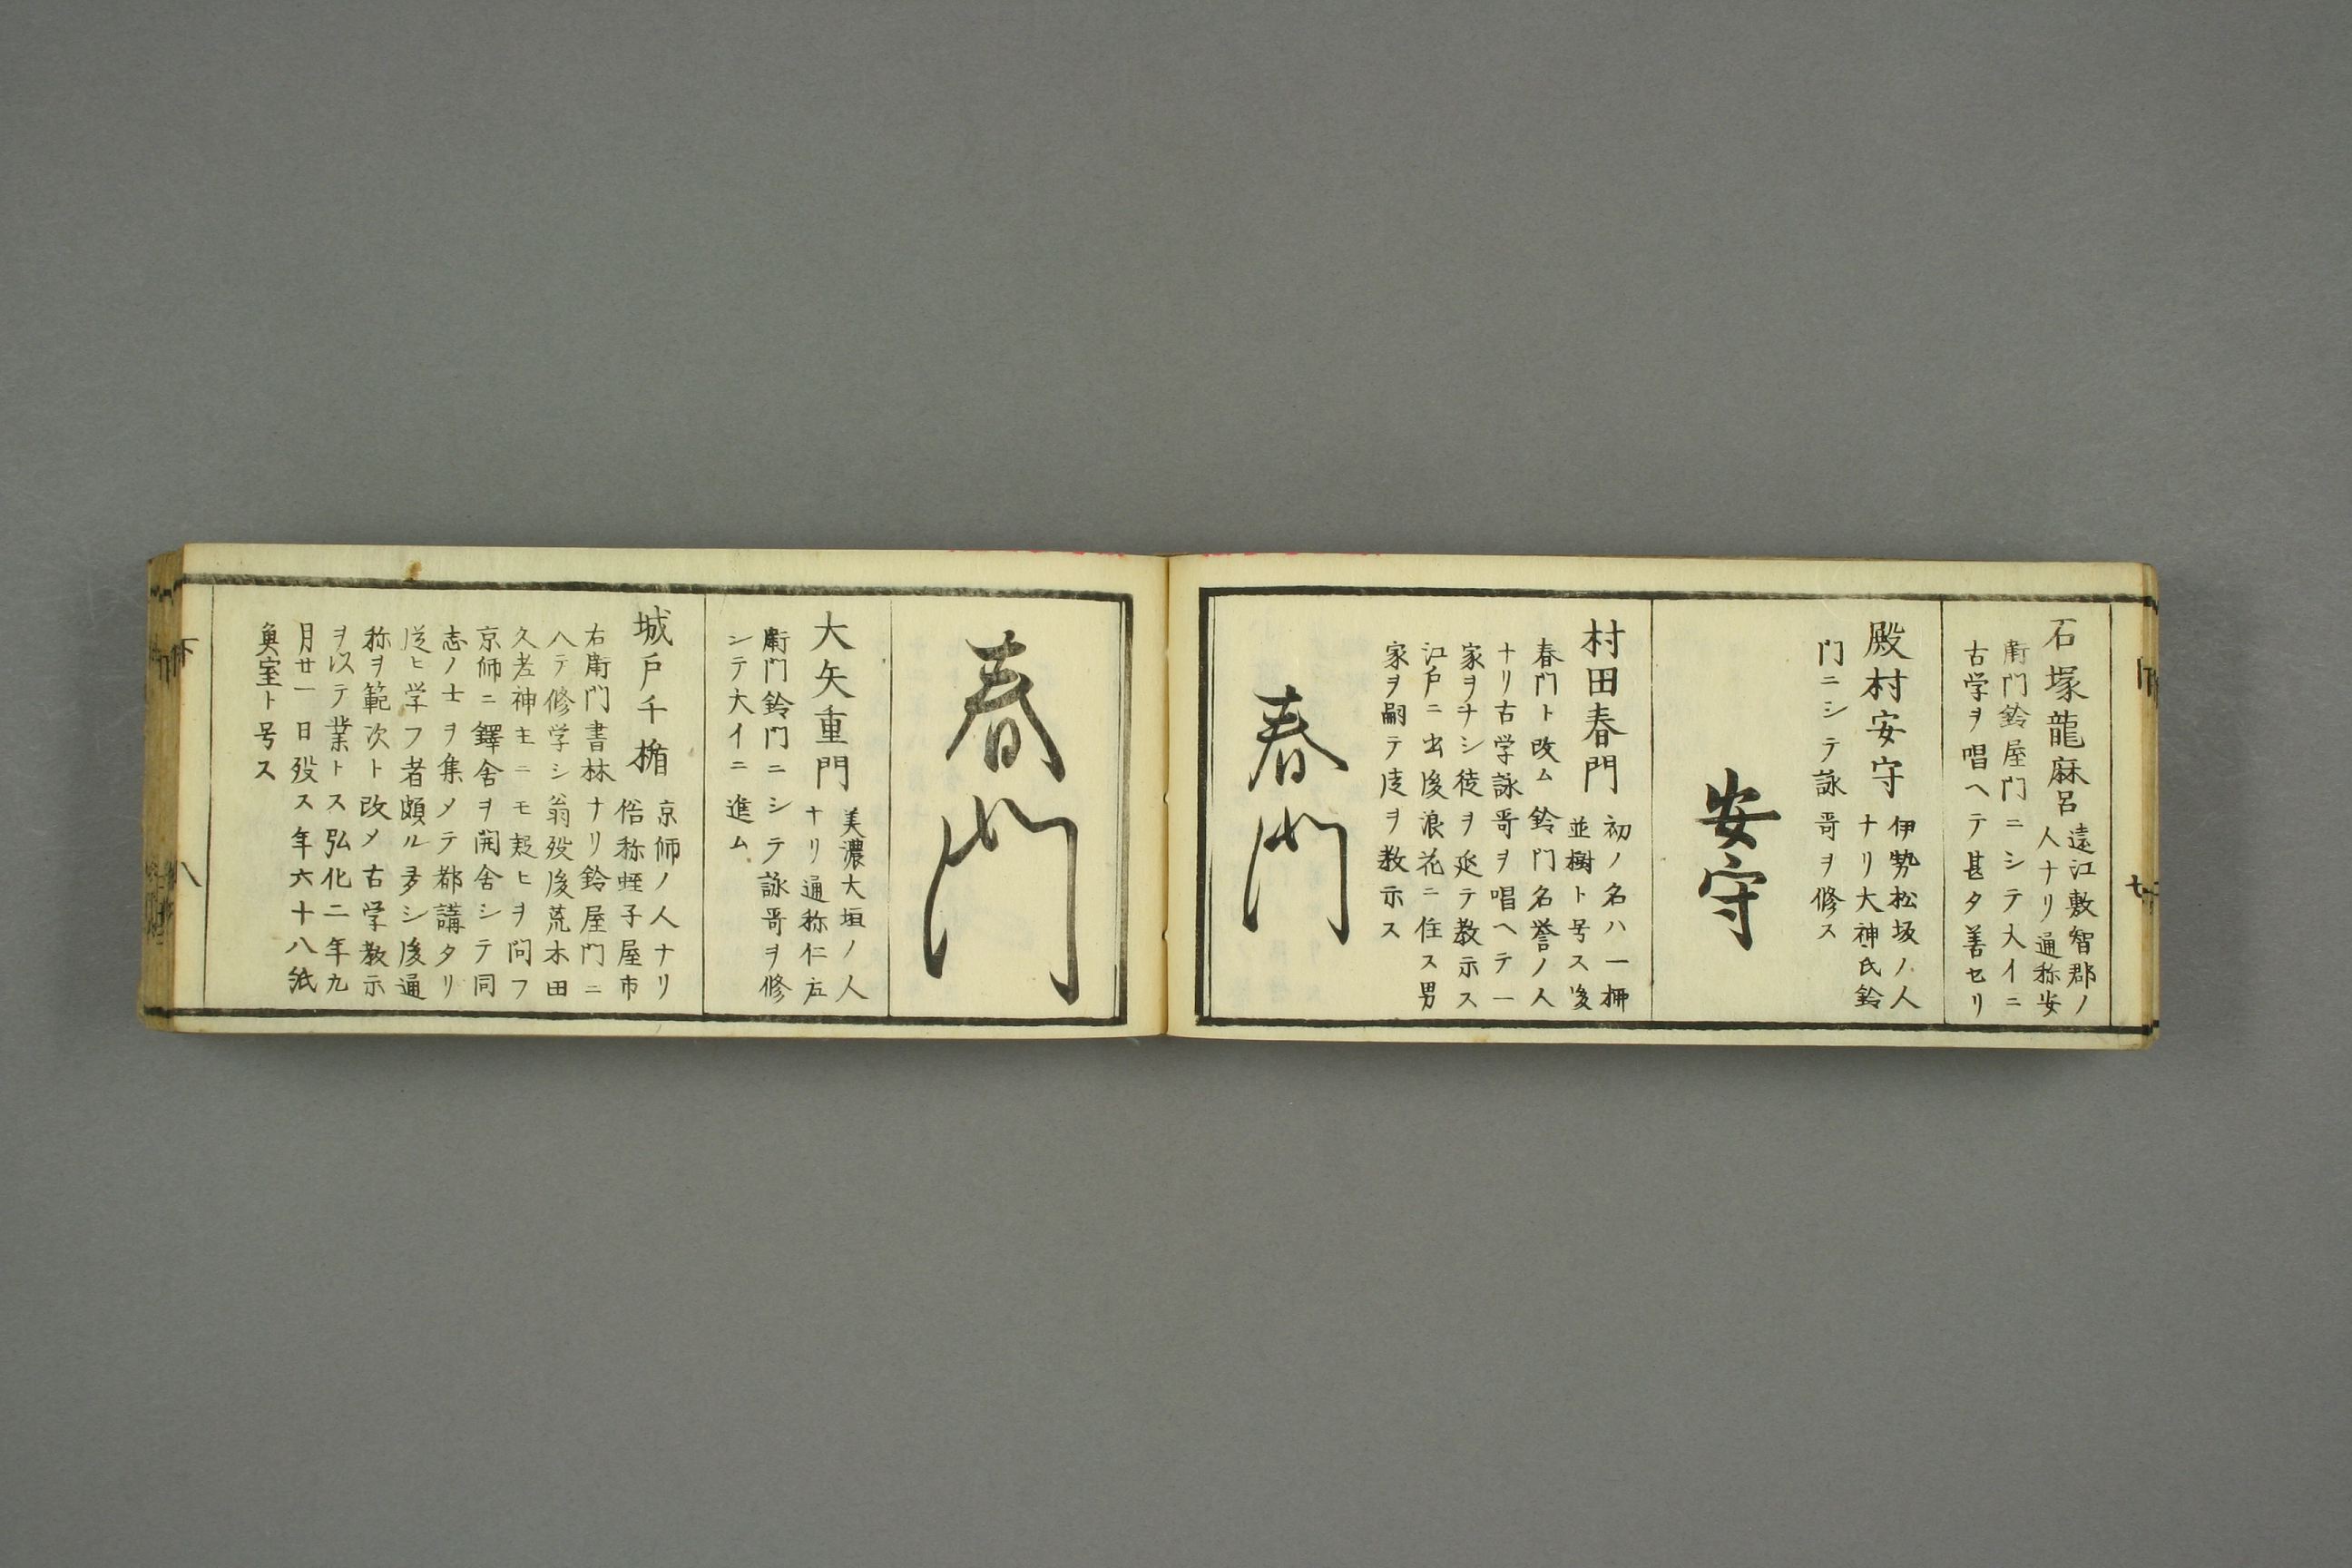 石塚龍麻呂 遠江敷智郡ノ
人ナリ通称安
衛門鈴屋門ニシテ大イニ
古学ヲ唱ヘテ甚タ善セリ
殿村安守 伊勢松坂ノ人
ナリ大神氏鈴
門ニシテ詠哥ヲ修ス
安守
村田春門 初ノ名ハ一柳
並樹ト号ス後
春門ト改ム鈴門名誉ノ人
ナリ古学詠哥ヲ唱ヘテ一
家ヲナシ徒ヲ延テ教示ス
江戸ニ出後浪花ニ住ス男
家ヲ嗣テ徒ヲ教示ス
春門
春門
大矢重門 美濃大垣ノ人
ナリ通称仁左
衛門鈴門ニシテ詠哥ヲ修
シテ大イニ進ム
城戸千楯 京師ノ人ナリ
俗称蛭子屋市
右衛門書林ナリ鈴屋門ニ
入テ修学シ翁歿後荒木田
久老神主ニモ疑ヒヲ問フ
京師ニ鐸舍ヲ開舍シテ同
志ノ士ヲ集メテ都講タリ
従ヒ学フ者頗ル多シ後通
称ヲ範次ト改メ古学教示
ヲ以テ業トス弘化二年九
月廿一日歿ス年六十八紙
魚室ト号ス
下
八
七